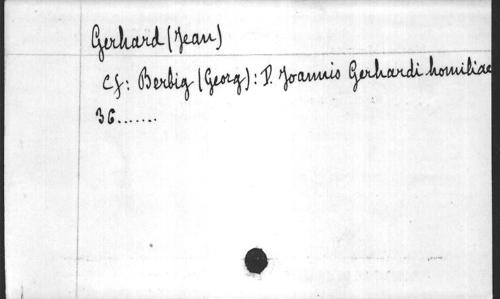 Gerhard (Jean)
Cf: Berbig (Georg): D. Joannis Gerhardi homiliae
36.......